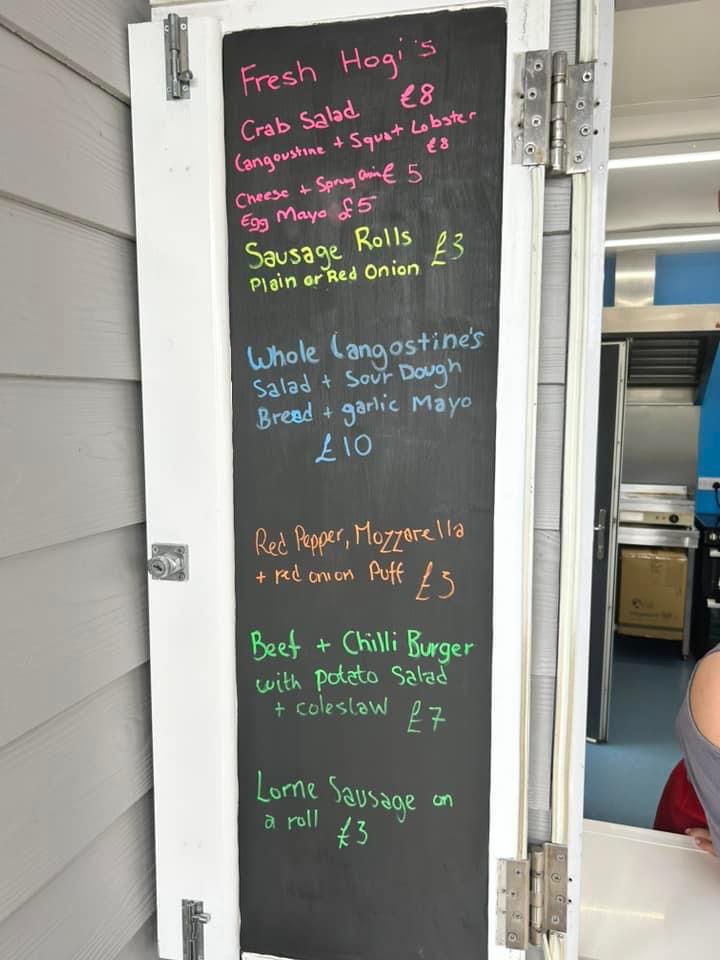 Fresh Hogi's
Crab Salad £8
Langoustine + Squat Lobster
£8
Cheese + Sprung Onion £5
Egg Mayo £5
Sausage Rolls £3
Plain or Red Onion
Whole Langostine's
Salad + Sour Dough
Bread + garlic Mayo
£10
Red Pepper, Mozzarella
+ red onion Puff £3
Beef + Chilli Burger
with potato Salad
+ coleslaw £7
Lorne Sausage on
a roll £3